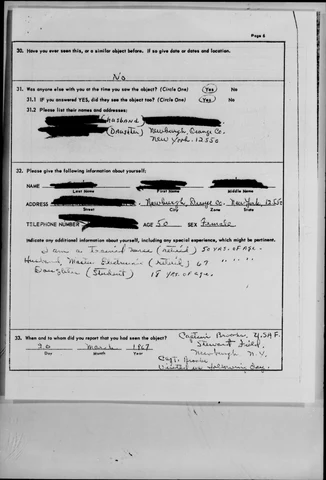 Page 6
30. Have you ever seen this, or a similar object before. If so give date or dates and location.
No
31. Was anyone else with you at the time you saw the object? (Circle One) Yes No
31.1 IF you answered YES, did they see the object too? (Circle One) Yes No
31.2 Please list their names and addresses:
(Husband)
(Daughter) Newburgh, Orange Co.
New York. 12550
32. Please give the following information about yourself:
NAME
Last Name First Name Middle Name
ADDRESS Newburgh, Orange Co. New York, 12550
Street City Zone State
TELEPHONE NUMBER AGE 50 SEX Female
Indicate any additional information about yourself, including any special experience, which might be pertinent.
I am a Nurse (retired) 50 yrs. of Age.
Husband, Master Electrician (retired) 67 " " "
Daughter (Student) 18 yrs. of age.
33. When and to whom did you report that you had seen the object?
20 March 1967
Day Month Year
Captain U.S.A.F.
Stewart Field,
Newburgh N.Y.
Capt.
Visited us following day.